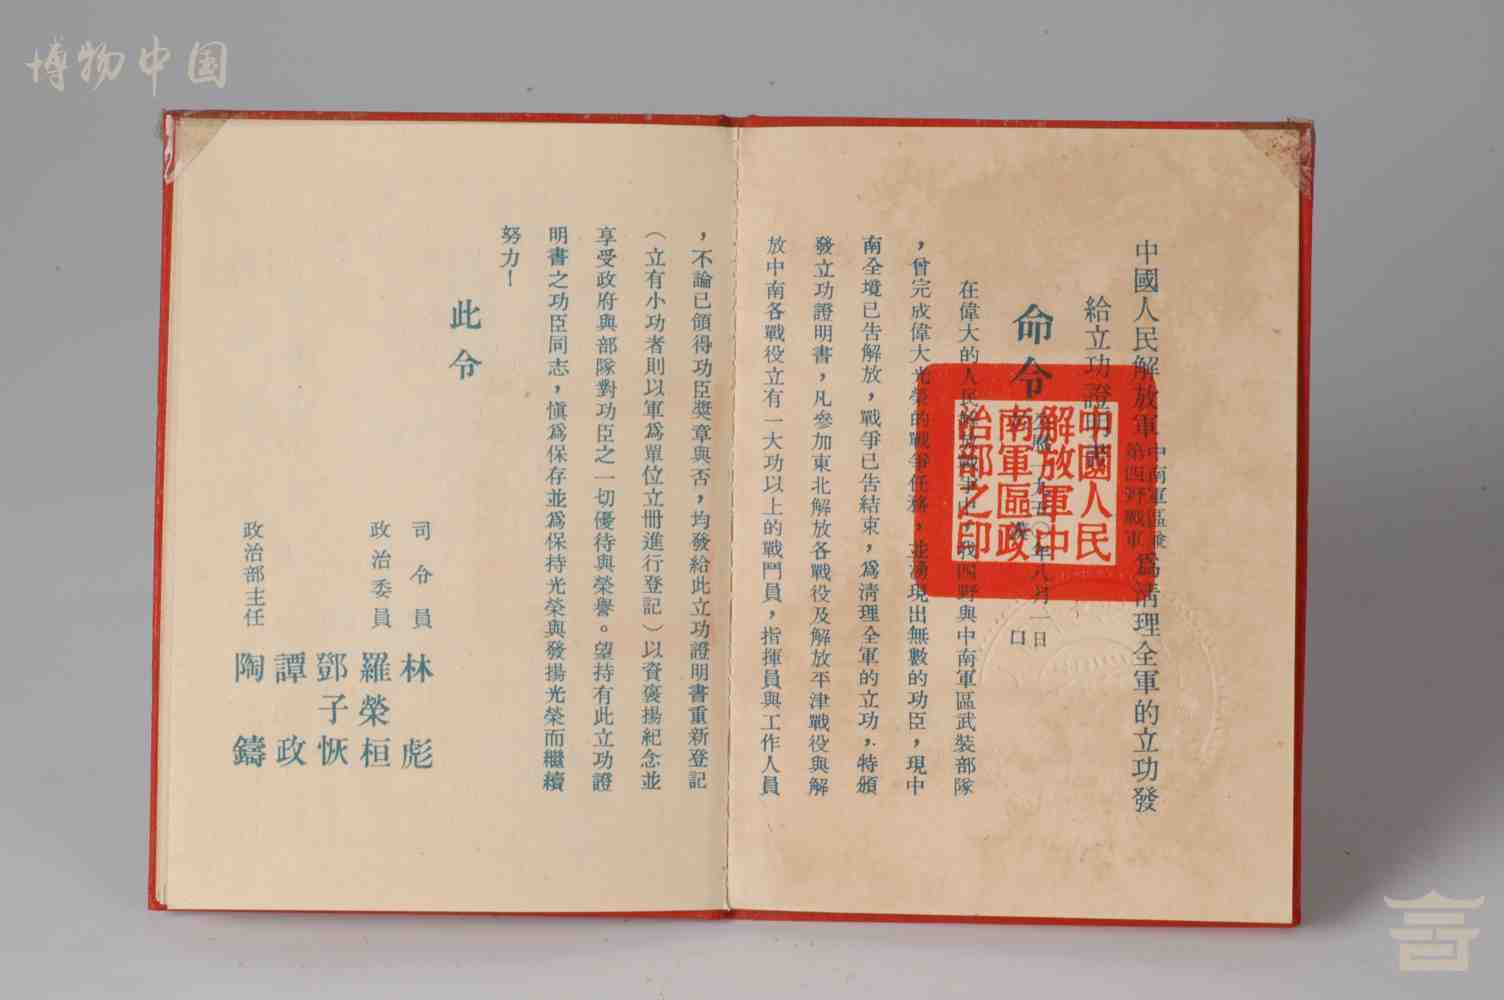 博物中国
中國人民解放軍中南軍區兼第四野戰軍為清理全軍的立功發
給立功證明書
命令
一九五〇年八月一日
在偉大的人民解放戰爭中，我四野與中南軍區武裝部隊
，曾完成偉大光榮的戰爭任務，並湧現出無數的功臣，現中
南全境已告解放，戰爭已告結束，為清理全軍的立功，特頒
發立功證明書，凡參加東北解放各戰役及解放平津戰役與解
放中南各戰役立有一大功以上的戰鬥員，指揮員與工作人員
，不論已領得功臣獎章與否，均發給此立功證明書重新登記
（立有小功者則以軍為單位立冊進行登記）以資褒揚紀念並
享受政府與部隊對功臣之一切優待與榮譽。望持有此立功證
明書之功臣同志，慎為保存並為保持光榮與發揚光榮而繼續
努力！
此令
司令員 林彪
政治委員 羅榮桓
鄧子恢
譚政
政治部主任 陶鑄
中國人民
解放軍中
南軍區政
治部之印